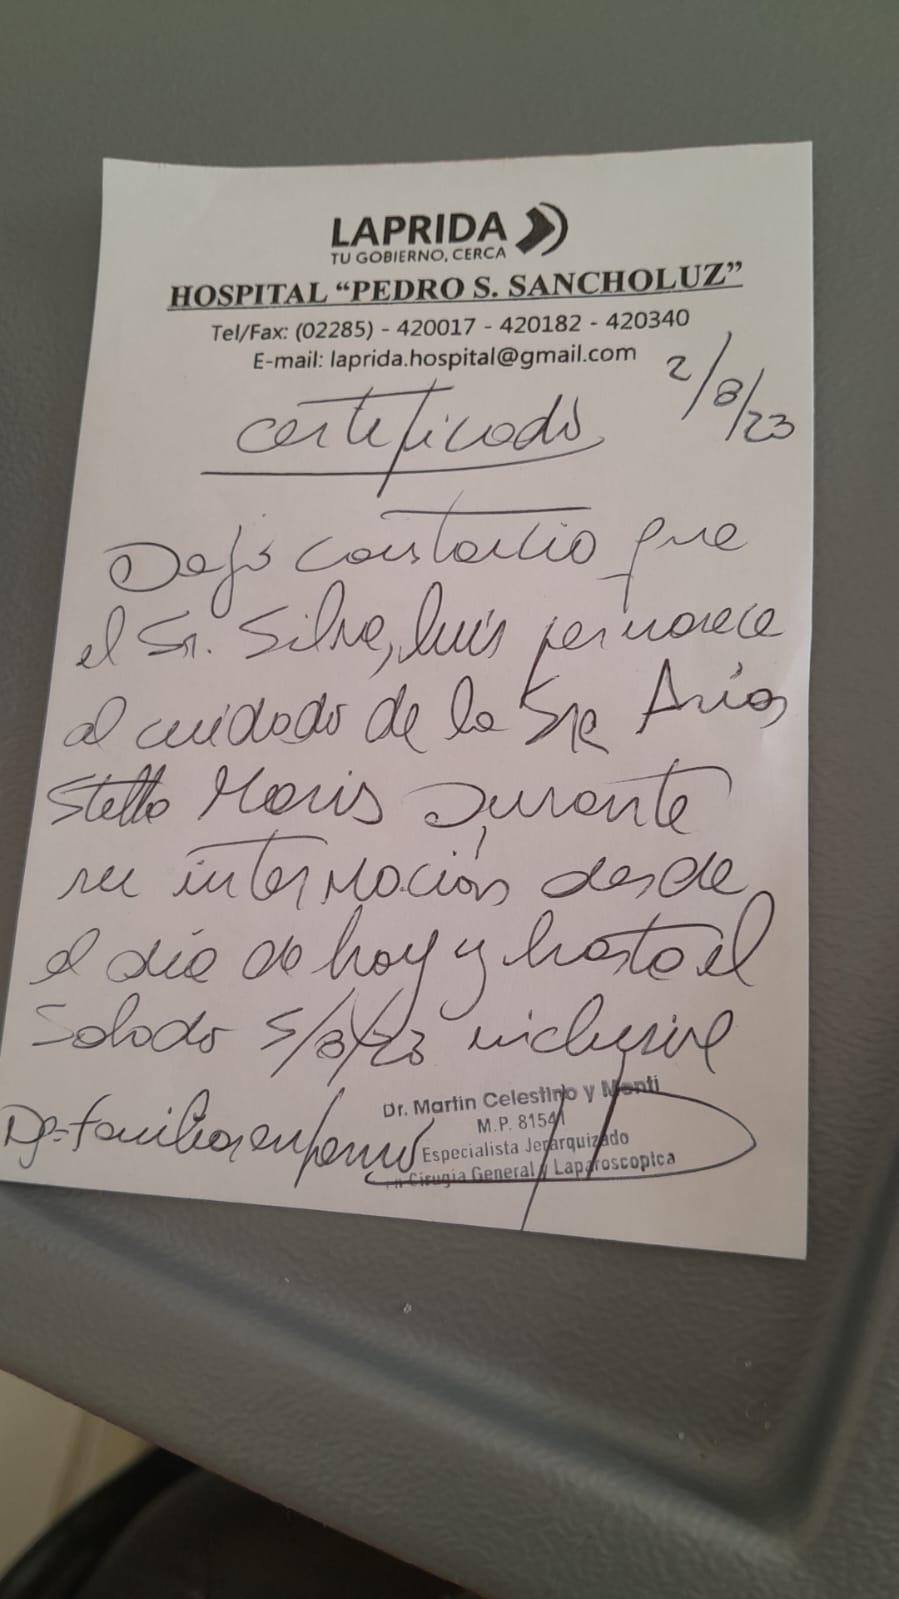 LAPRIDA
TU GOBIERNO, CERCA
HOSPITAL “PEDRO S. SANCHOLUZ”
Tel/Fax: (02285) - 420017 - 420182 - 420340
E-mail: laprida.hospital@gmail.com
2/8/23
Certificado
Dejo constancia que
el Sr. Silva, Luis permanece
al cuidado de la Sra Arias
Stella Maris Durante
su internación desde
el día de hoy y hasta el
Sabado 5/8/23 inclusive
Dg= familiar enfermo
Dr. Martin Celestino y Monti
M.P. 81541
Especialista Jerarquizado
en Cirugia General y Laparoscopica